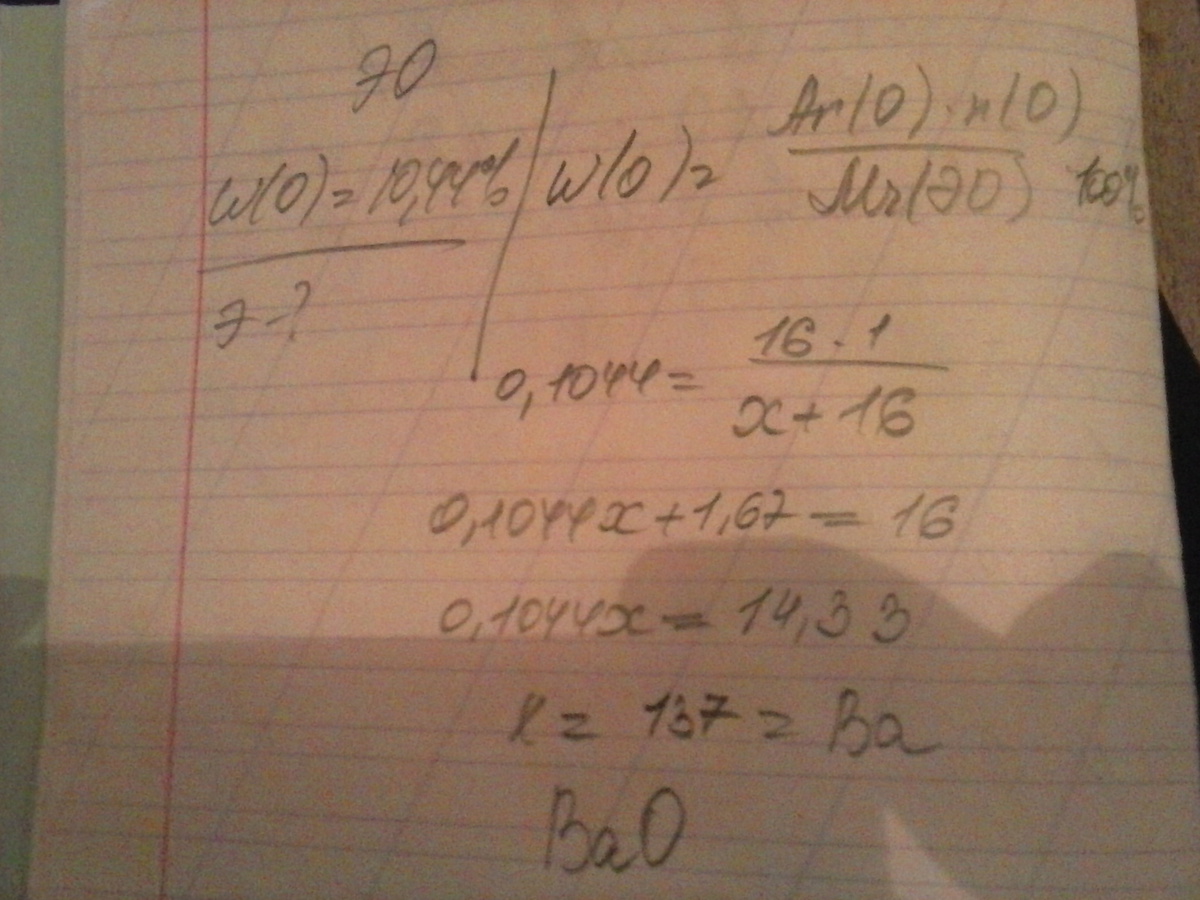 ЭО
W(O) = 10,44%
Э - ?
W(O) = Ar(O) · n(O) / Mr(ЭО) 100%
0,1044 = 16 · 1 / x + 16
0,1044x + 1,67 = 16
0,1044x = 14,33
x = 137 = Ba
BaO